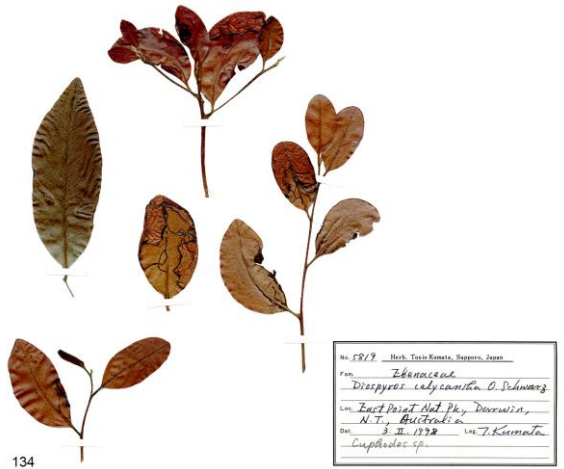 No. 5819 Herb. Tosio Kumata, Sapporo, Japan
Fam. Ebenaceae
Diospyros calycantha O. Schwarz
Loc. East Point Nat. Pk., Darwin,
N.T., Australia
Dat. 3. II. 1998 Leg. T. Kumata
Cuphodes sp.
134